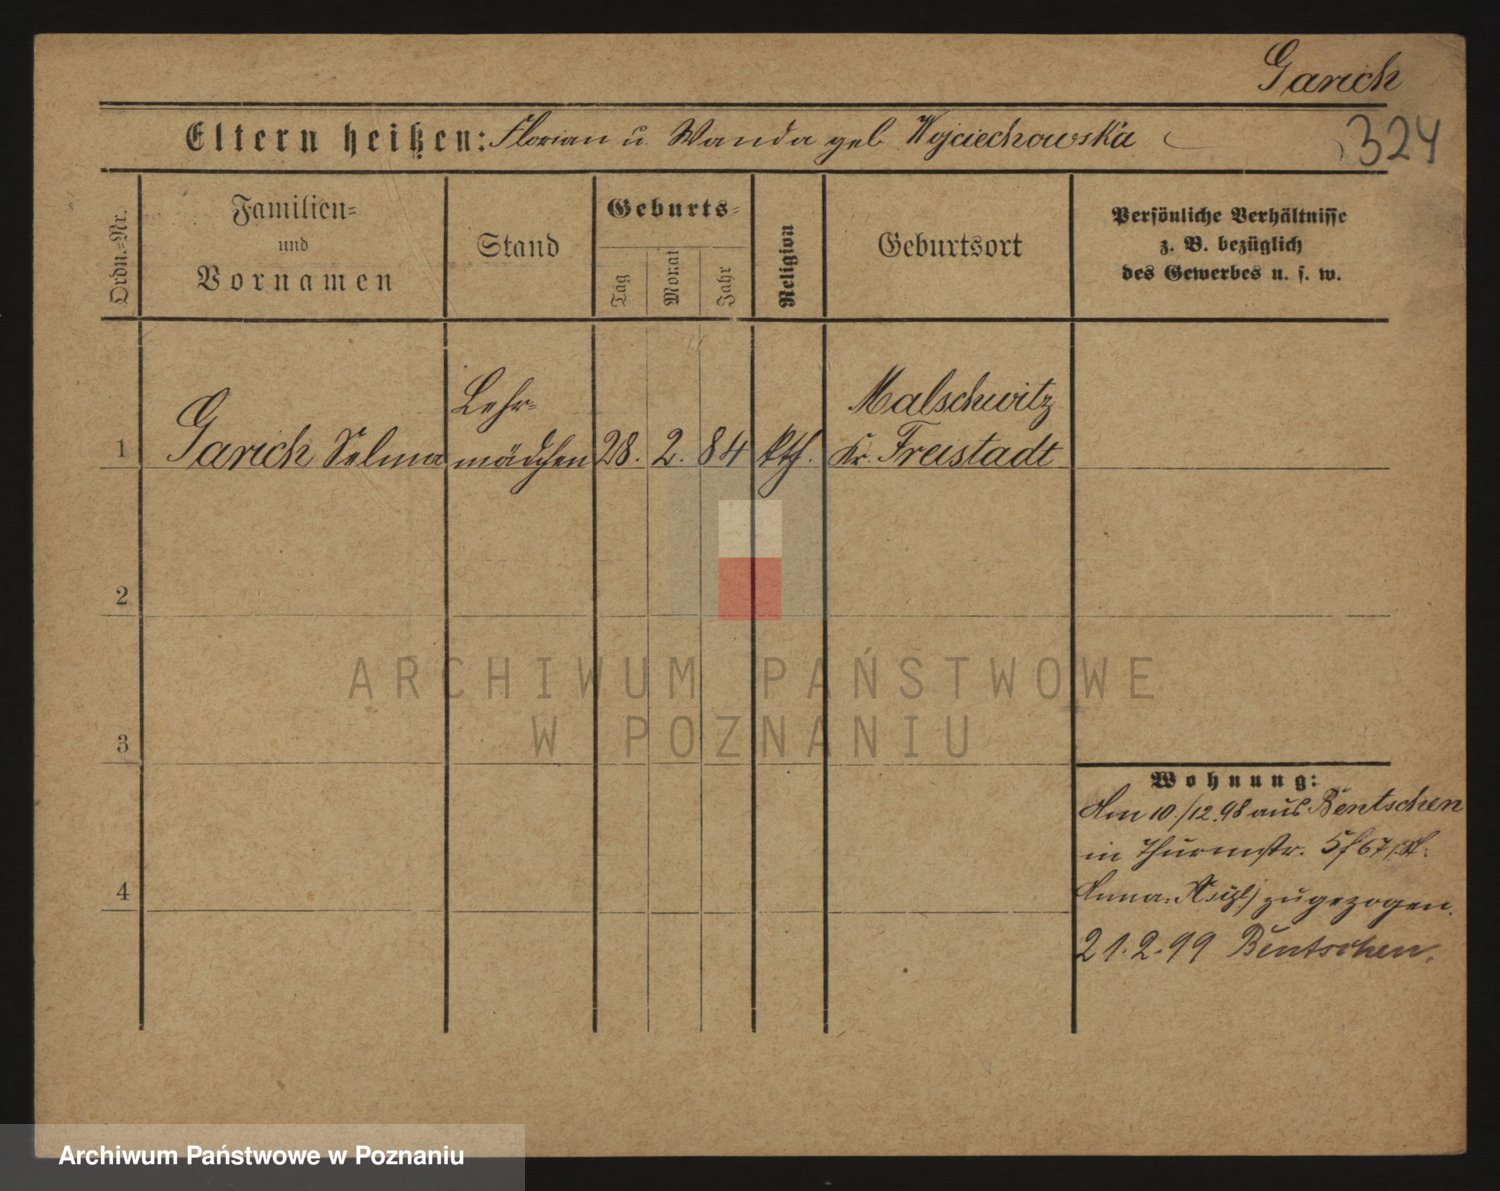 Garich
Eltern heißen: Florian u. Wanda geb. Wojciechowska
324
Ordn.-Nr.
Familien-
und
Vornamen
Stand
Geburts-
Tag
Monat
Jahr
Religion
Geburtsort
Persönliche Verhältnisse
z. B. bezüglich
des Gewerbes u. s. w.
1
Garich Selma
Lehr-
mädchen
28.
2.
84
kth.
Malschwitz
Kr. Freistadt
2
3
4
Wohnung:
Am 10./12.98 aus Bentschen
in Thurmstr.
zugezogen.
21.2.99 Bentschen.
ARCHIWUM PAŃSTWOWE
W POZNANIU
Archiwum Państwowe w Poznaniu